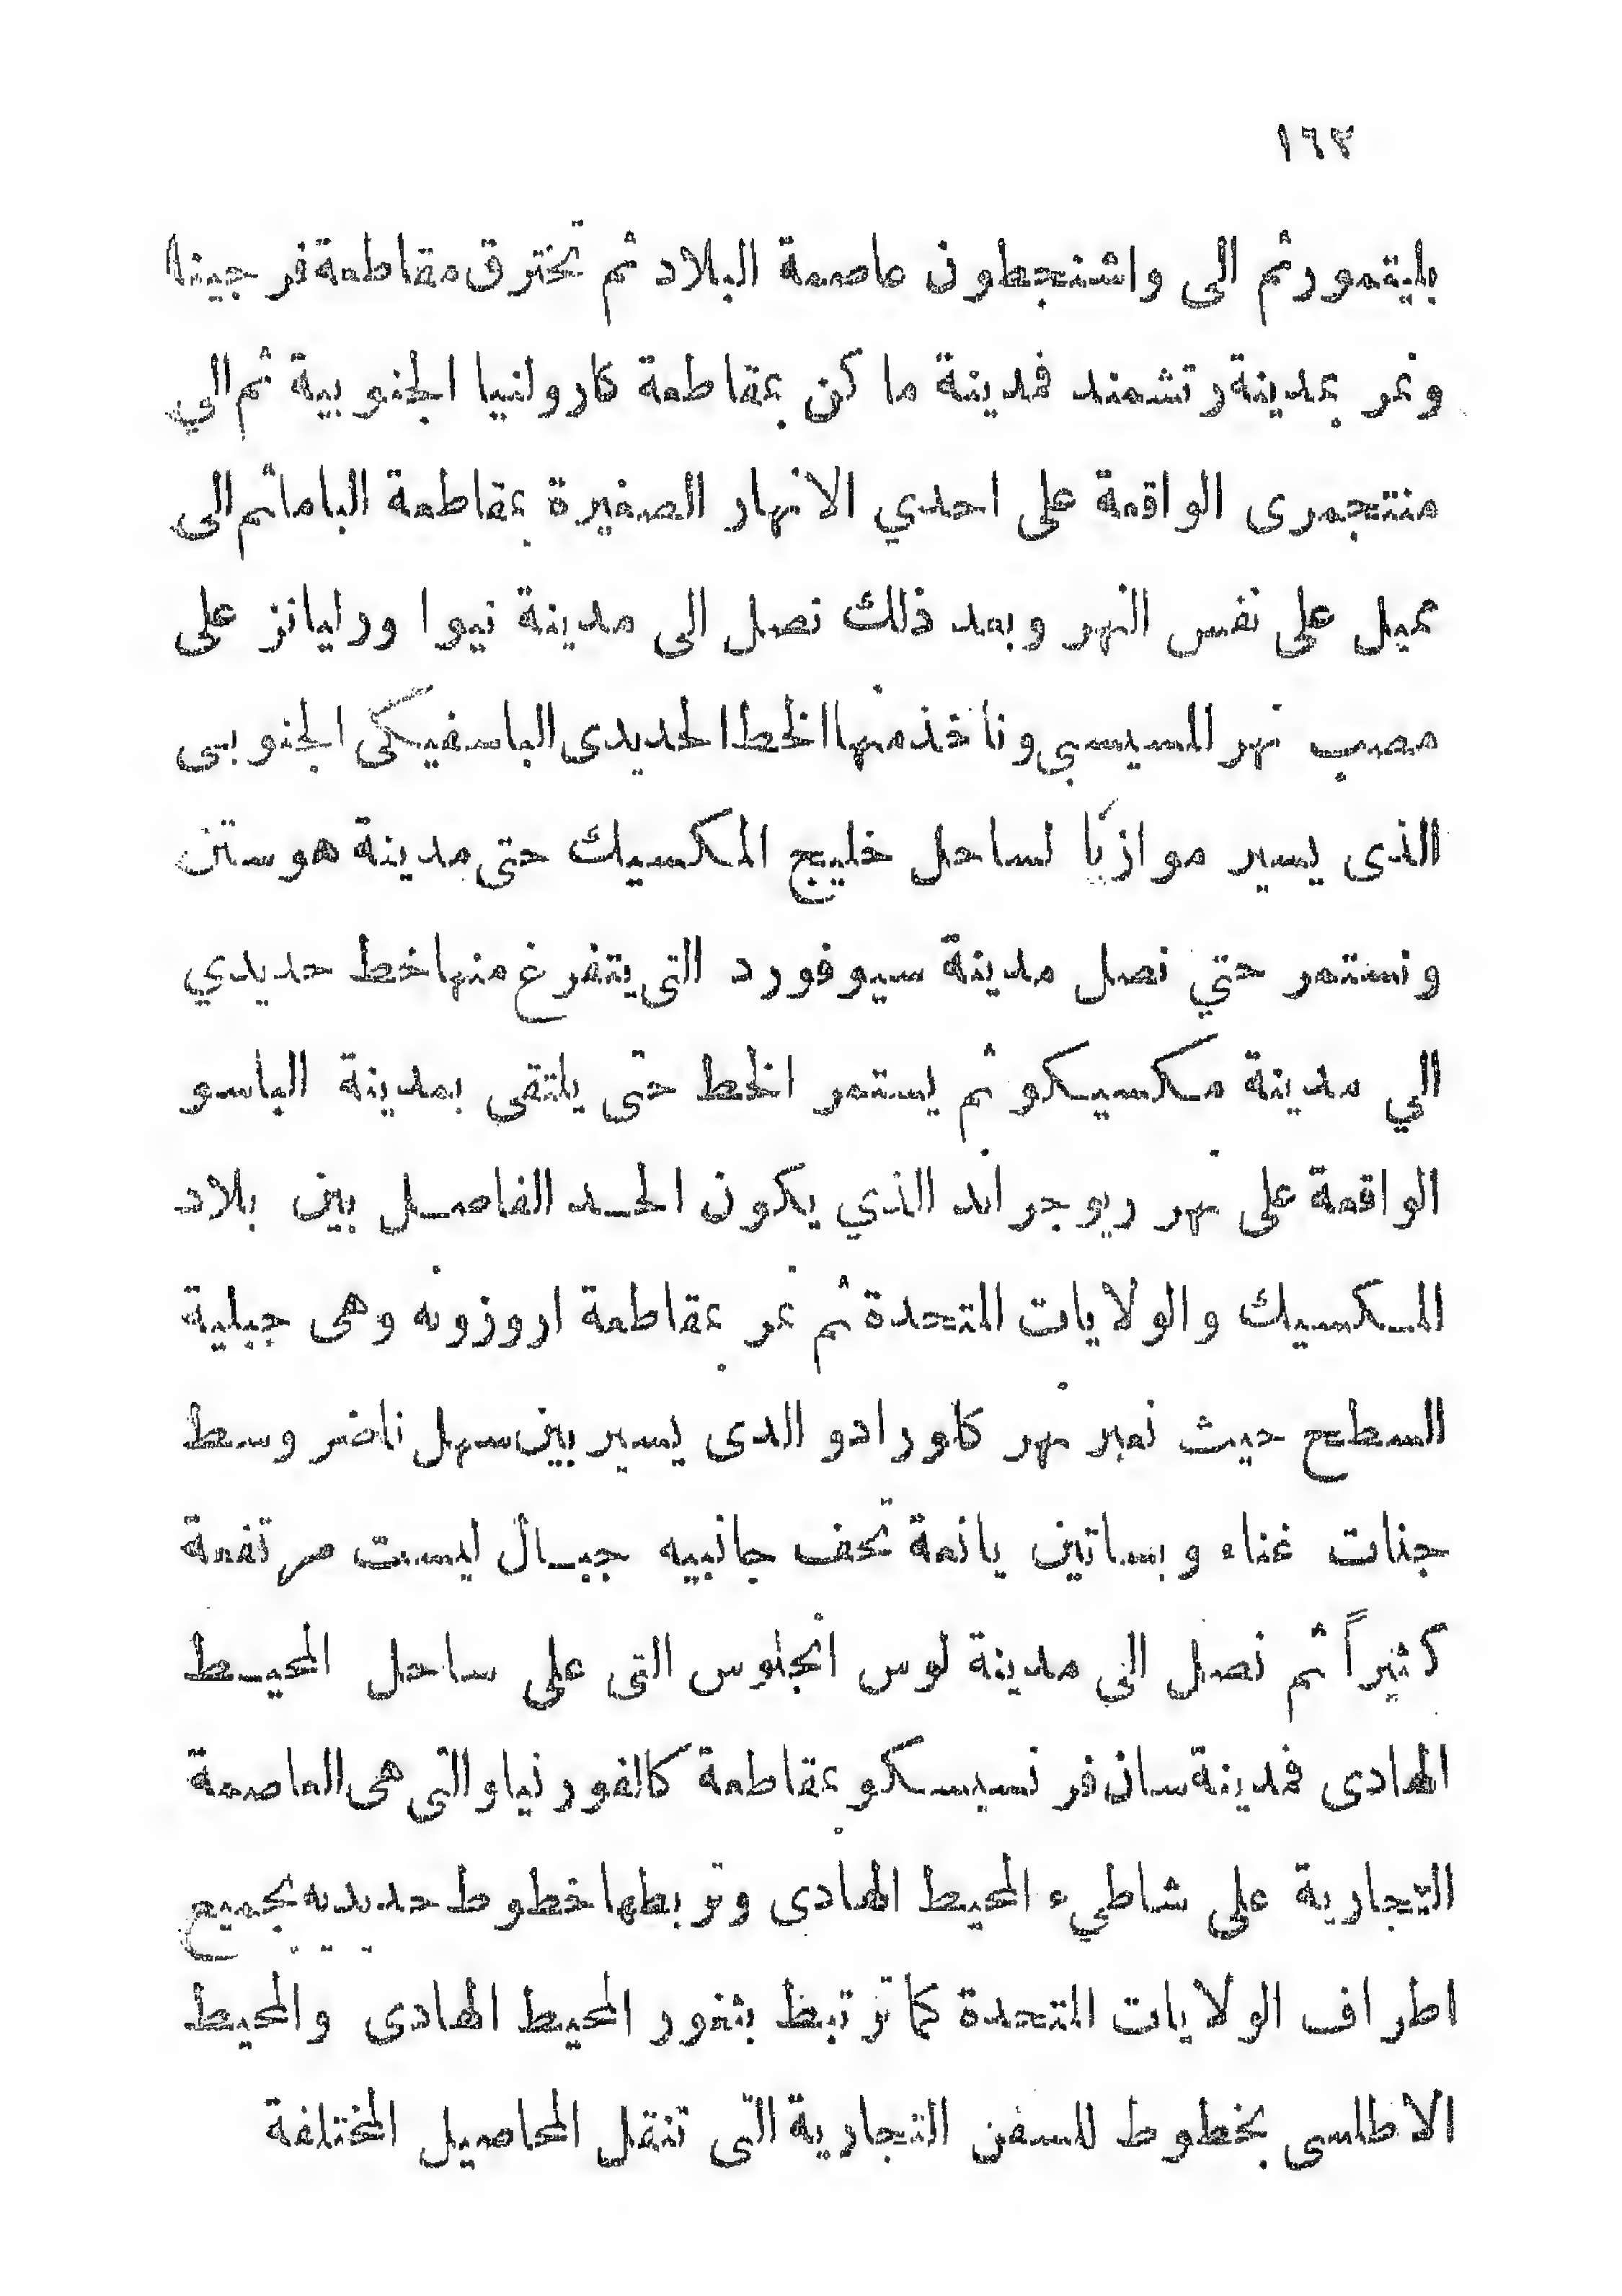 ١٦٢
بليتمور ثم الى واشنجطون عاصمة البلاد ثم نخترق مقاطعة فرجينا
ونمر بمدينة رتشمند فمدينة ماكن بمقاطعة كارولنيا الجنوبية ثم الي
منتجمرى الواقعة على احدي الانهار الصغيرة بمقاطعة الباما ثم الى
بميل على نفس النهر وبعد ذلك نصل الى مدينة نيوا ورليانز على
مصب نهر المسيسبي ونأخذ منها الخط الحديدى الباسفيكى الجنوبى
الذى يسير موازيًا لساحل خليج المكسيك حتى مدينة هوستن
ونستمر حتي نصل مدينة سيوفورد التى يتفرغ منها خط حديدي
الي مدينة مكسيكو ثم يستمر الخط حتى يلتقى بمدينة الباسو
الواقعة على نهر ريوجراند الذي يكون الحد الفاصل بين بلاد
المكسيك والولايات المتحدة ثم نمر بمقاطعة اروزونه وهى جبلية
السطح حيث نعبر نهر كلورادو الدى يسير بين سهل ناضر وسط
جنات غناء وبساتين يانعة تحف جانبيه جبال ليست مرتفعة
كثيراً ثم نصل الى مدينة لوس انجلوس التى على ساحل المحيط
الهادى فمدينة سان فرنسيسكو بمقاطعة كالفورنيا والتى هى العاصمة
التجارية على شاطيء المحيط الهادى وتربطها خطوط حديديه بجميع
اطراف الولايات المتحدة كما ترتبط بثغور المحيط الهادى والمحيط
الاطلسى بخطوط للسفن التجارية التى تنقل المحاصيل المختلفة